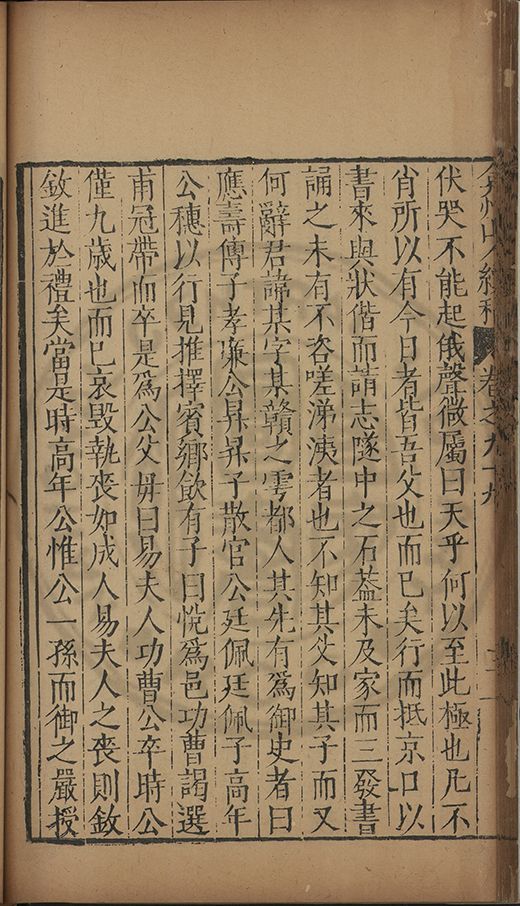 弇州山人續稿 卷之九十九
伏哭不能起俄聲微屬曰天乎何以至此極也凡不
肖所以有今日者皆吾父也而已矣行而抵京口以
書來與狀偕而請志隧中之石葢未及家而三發書
誦之未有不咨嗟涕洟者也不知其父知其子而又
何辭君諱某字某贛之雩都人其先有爲御史者曰
應壽傳子孝廉公昇昇子散官公廷佩廷佩子高年
公穗以行見推擇賓鄉飲有子曰悅爲邑功曹謁選
甫冠帶而卒是爲公父毋曰易夫人功曹公卒時公
僅九歲也而已哀毀執喪如成人易夫人之喪則斂
斂進於禮矣當是時高年公惟公一孫而御之嚴授